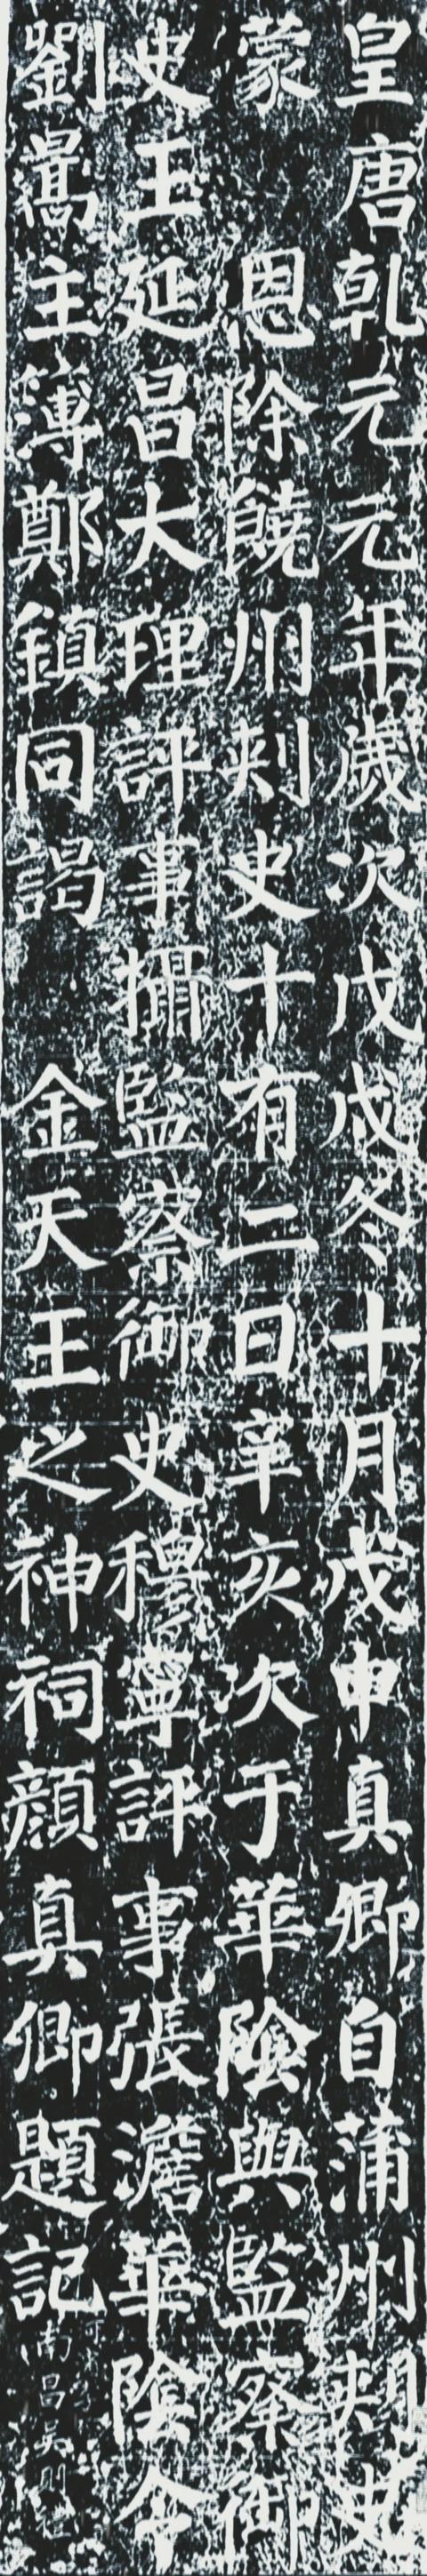 皇唐乾元元年歲次戊戌冬十月戊申真卿自蒲州刺史
蒙 恩除饒州刺史十有二日辛亥次于華陰與監察御
史王延昌大理評事攝監察御史穆寧評事張澹華陰令
劉暠主簿鄭鎮同謁 金天王之神祠顏真卿題記